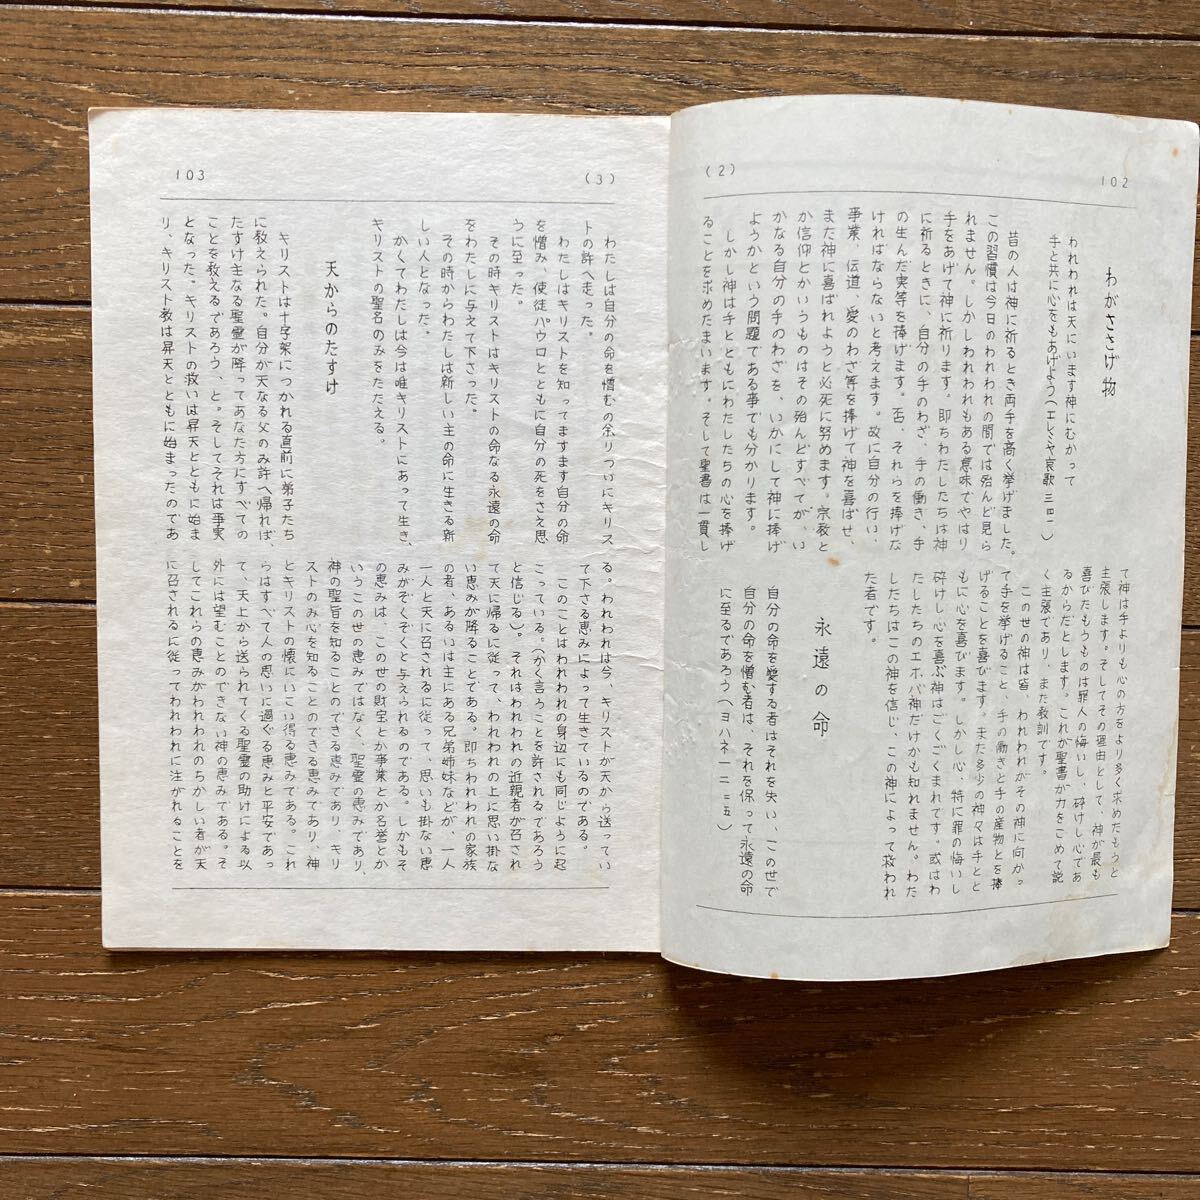 102
(2)
わがささげ物
われわれは天にいます神にむかって
手と共に心をもあげよう(エレミヤ哀歌 三四一)
昔の人は神に祈るとき両手を高く挙げました。
この習慣は今日のわれわれの間では殆んど見ら
れません。しかしわれわれもある意味でやはり
手をあげて神に祈ります。即ちわたしたちは神
に祈るときに、自分の手のわざ、手の働き、手
の生んだ実等を捧げます。否、それらを捧げな
ければならないと考えます。故に自分の行い、
事業、伝道、愛のわざ等を捧げて神を喜ばせ、
また神に喜ばれようと必死に努めます。宗教と
か信仰とかいうものはその殆んどすべてが、い
かなる自分の手のわざを、いかにして神に捧げ
ようかという問題である事でも分かります。
しかし神は手とともにわたしたちの心を捧げ
ることを求めたまいます。そして聖書は一貫し
て神は手よりも心の方をより多く求めたもうと
主張します。そしてその理由として、神が最も
喜びたもうものは罪人の悔いし、砕けし心であ
るからだとします。これが聖書が力をこめて説
く主張であり、また教訓です。
この世の神は皆、われわれがその神に向かっ
て手を挙げること、手の働きと手の産物とを捧
げることを喜びます。また多少の神々は手とと
もに心を喜びます。しかし心、特に罪の悔いし
砕けし心を喜ぶ神はごくごくまれです。或はわ
たしたちのエホバ神だけかも知れません。わた
したちはこの神を信じ、この神によって救われ
た者です。
永遠の命
自分の命を愛する者はそれを失い、この世で
自分の命を憎む者は、それを保って永遠の命
に至るであろう(ヨハネ一二=五)
103
(3)
わたしは自分の命を憎むの余りついにキリス
トの許へ走った。
わたしはキリストを知ってますます自分の命
を憎み、使徒パウロとともに自分の死をさえ思
うに至った。
その時キリストはキリストの命なる永遠の命
をわたしに与えて下さった。
その時からわたしは新しい主の命に生きる新
しい人となった。
かくてわたしは今は唯キリストにあって生き、
キリストの聖名のみをたたえる。
天からのたすけ
キリストは十字架につかれる直前に弟子たち
に教えられた。自分が天なる父のみ許へ帰れば、
たすけ主なる聖霊が降ってあなた方にすべての
ことを教えるであろう、と。そしてそれは事実
となった。キリストの救いは昇天とともに始ま
り、キリスト教は昇天とともに始まったのであ
る。われわれは今、キリストが天から送ってい
て下さる恵みによって生きているのである。
このことはわれわれの身辺にも同じように起
こっている。(かく言うことを許されるであろう
と信じる)。それはわれわれの近親者が召され
て天に帰るに従って、われわれの上に思い掛な
い恵みが降ることである。即ちわれわれの家族
の者、あるいは主にある兄弟姉妹などが、一人
一人と天に召されるに従って、思いも掛ない恵
みがぞくぞくと与えられるのである。しかもそ
の恵みは、この世の財宝とか事業とか名誉とか
いうこの世の恵みではなく、聖霊の恵みであり、
神の聖旨を知ることのできる恵みであり、キリ
ストのみ心を知ることのできる恵みであり、神
とキリストの懐にいこい得る恵みである。これ
らはすべて人の思いに過ぐる恵みと平安であっ
て、天上から送られてくる聖霊の助けによる以
外には望むことのできない神の恵みである。そ
してこれらの恵みがわれわれのちかしい者が天
に召されるに従ってわれわれに注がれることを